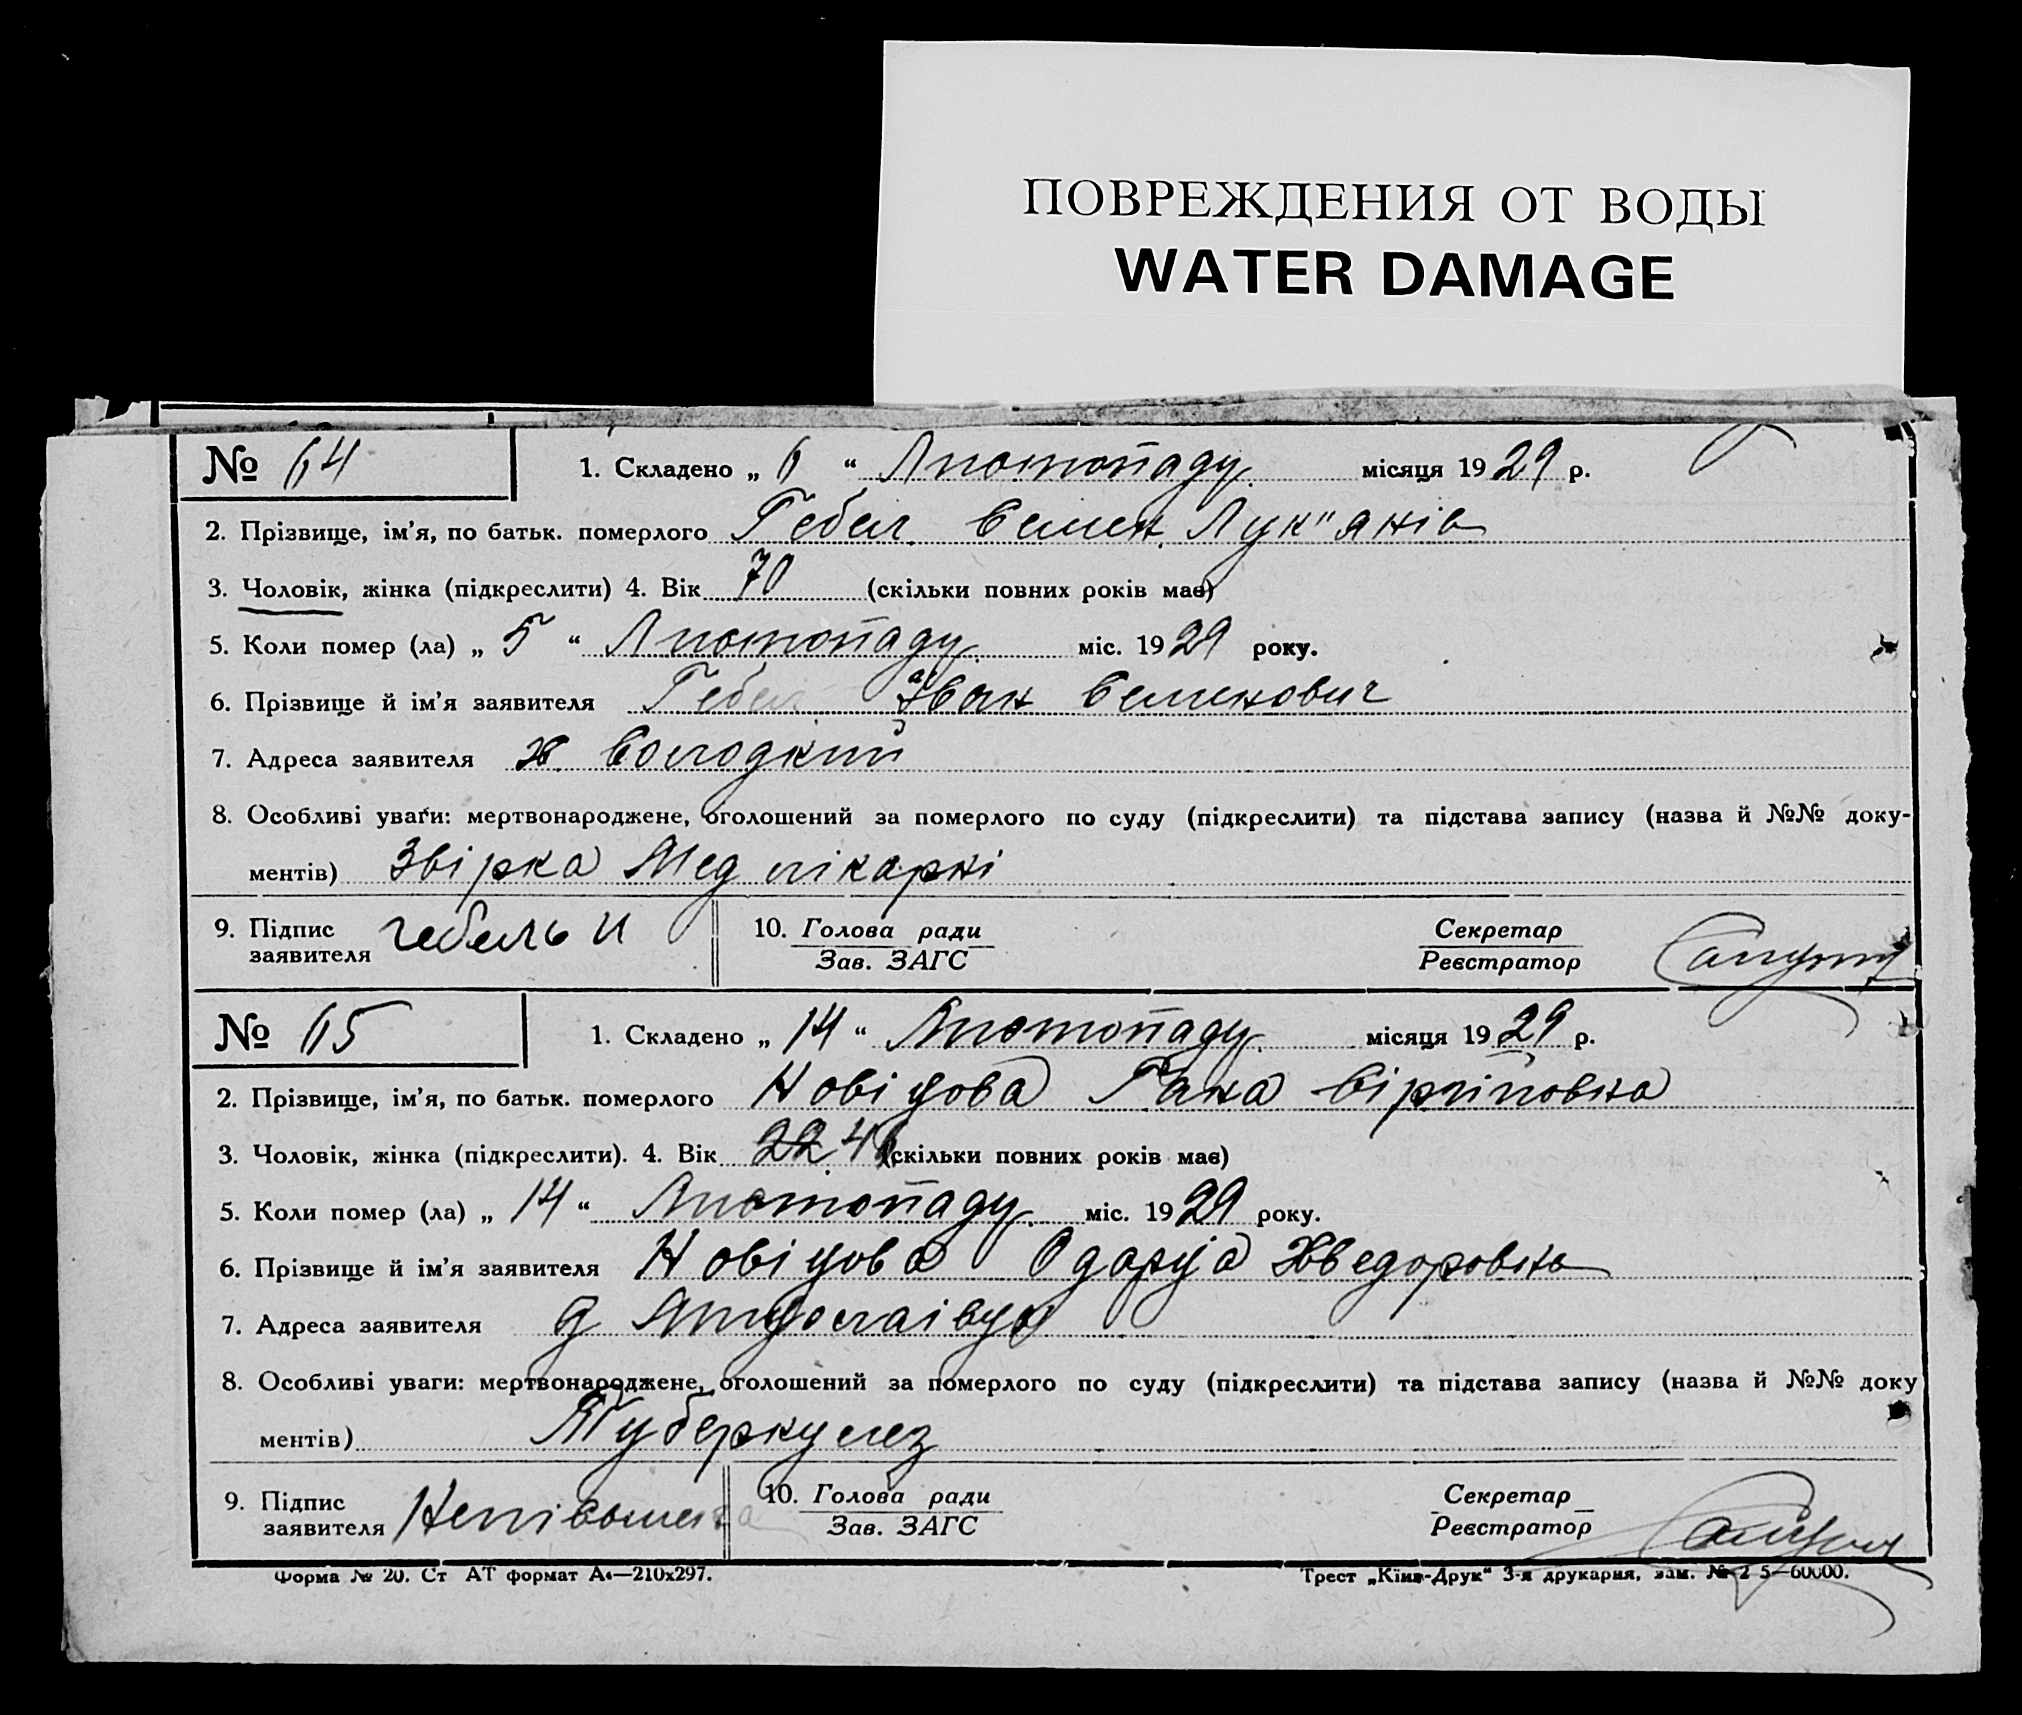 ПОВРЕЖДЕНИЯ ОТ ВОДЫ
WATER DAMAGE
№ 64 1. Складено „ 6 “ Листопаду місяця 1929 р.
2. Прізвище, ім'я, по батьк. померлого Гебел Семен Лук"янів
3. Чоловік, жінка (підкреслити) 4. Вік 70 (скільки повних років має)
5. Коли помер (ла) „ 5 “ Листопаду міс. 1929 року.
6. Прізвище й ім'я заявителя Гебел Іван Семенович
7. Адреса заявителя х Солодкий
8. Особливі уваґи: мертвонароджене, оголошений за померлого по суду (підкреслити) та підстава запису (назва й №№ доку-
ментів) Звірка Мед лікарні
9. Підпис заявителя гебель И 10. Голова ради Зав. ЗАГС Секретар Реєстратор
№ 65 1. Складено „ 14 “ Листопаду місяця 1929 р.
2. Прізвище, ім'я, по батьк. померлого Новіцова Гана
3. Чоловік, жінка (підкреслити). 4. Вік 22 (скільки повних років має)
5. Коли помер (ла) „ 14 “ Листопаду міс. 1929 року.
6. Прізвище й ім'я заявителя Новіцова Одарця Хведоровна
7. Адреса заявителя д
8. Особливі уваги: мертвонароджене, оголошений за померлого по суду (підкреслити) та підстава запису (назва й №№ доку
ментів) Туберкулез
9. Підпис заявителя Непісьмена 10. Голова ради Зав. ЗАГС Секретар Реєстратор
Форма № 20. Ст АТ формат А4—210х297. Трест „Київ-Друк“ 3-я друкарня, зам. №